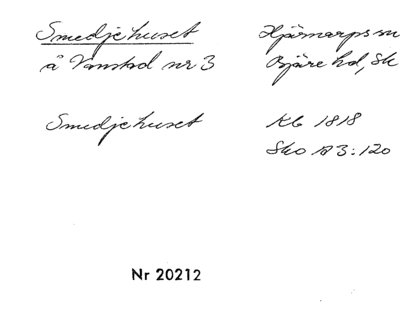 Smedjehuset
å Vanstad nr 3
Hjärnarps sn
Bjäre hd, Sk
Smedjehuset
Kb 1818
Sko A3:120
Nr 20212